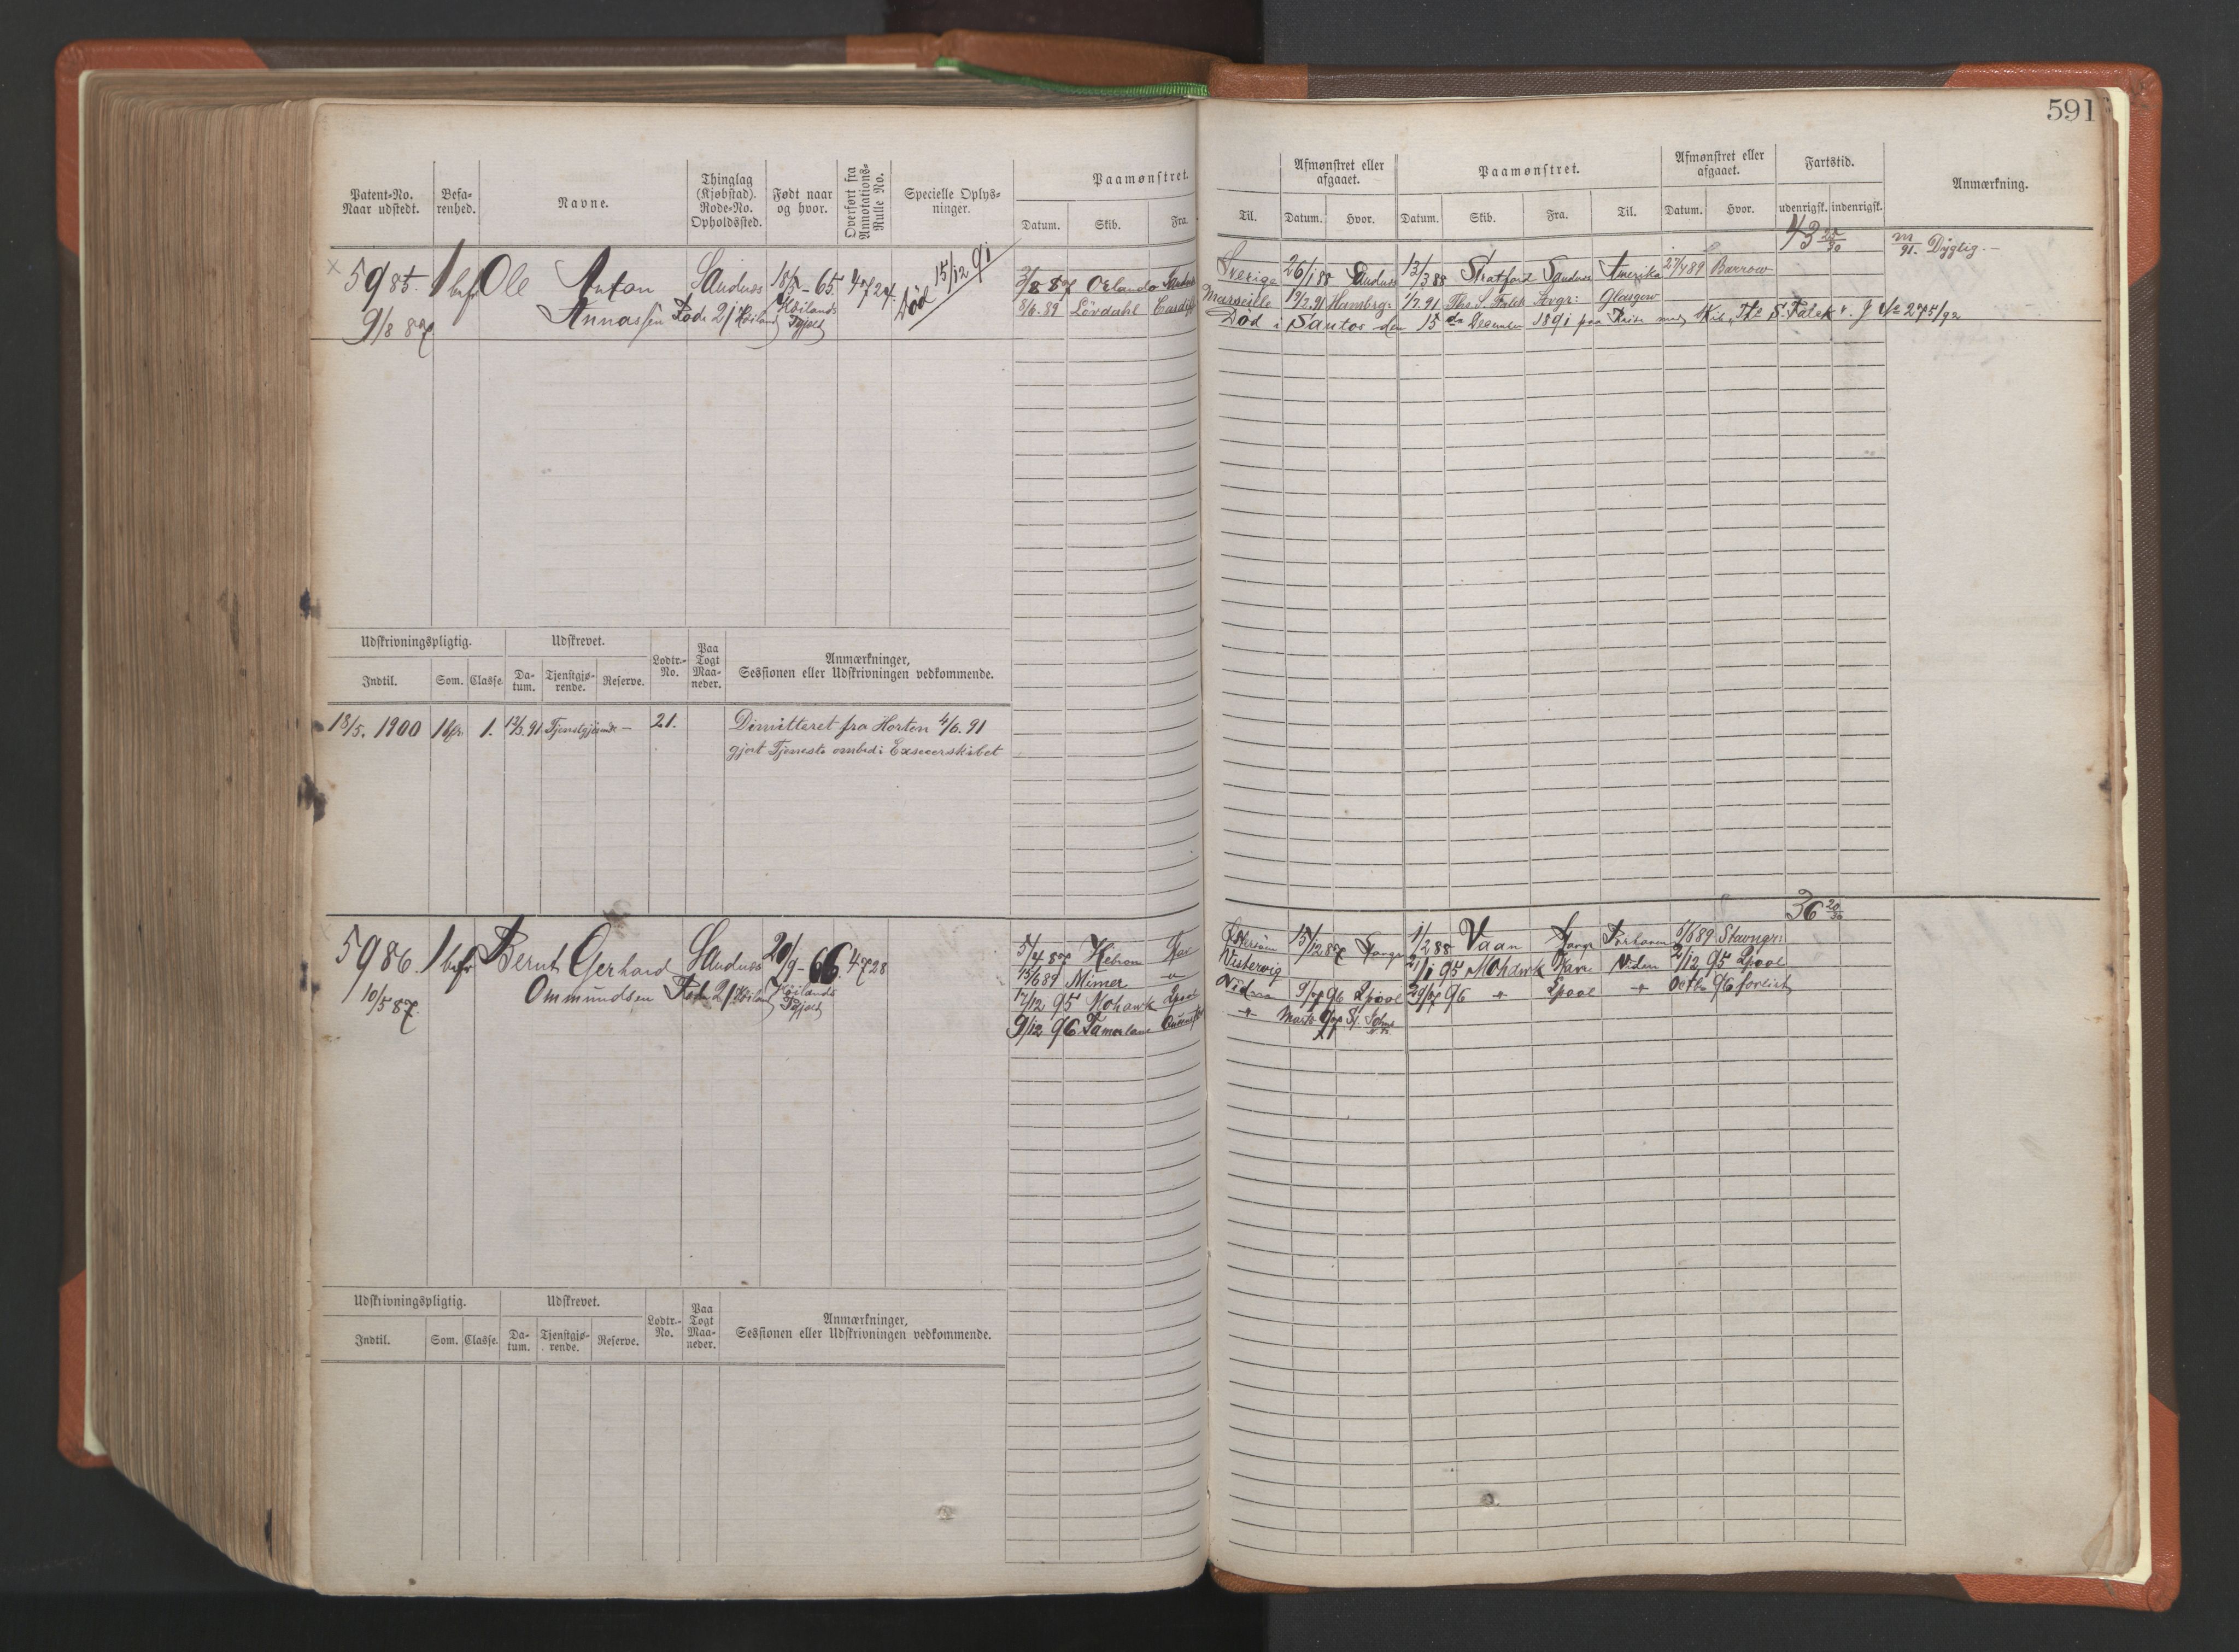 591
Patent-No. Naar udstedt. Befarenhed. Navne. Thinglag (Kjøbstad). Rode-No. Opholdssted. Født naar og hvor. Overført fra Annotations-Rulle No. Specielle Oplysninger. Paamønstret.
Datum. Skib. Fra.
Afmønstret eller afgaaet. Paamønstret. Afmønstret eller afgaaet. Fartstid. Anmærkning.
Til. Datum. Hvor. Datum. Skib. Fra. Til. Datum. Hvor. udenrigsk. indenrigsk.
43 25/30
5985. 1 bef Ole Anton Sandnes 18/5-65 4727. Død 15/12 91 2/8 87 Orlando Sandnes
9/8 87 Annassen Rode 21 Høiland Høilands Pgjeld 8/6.89 Lövdahl Cardiff
Sverige 26/1 88 Sandnes 13/3 88 Stratford Sandnes Amerika 27/4 89 Barrow
m/91. Dygtig.-
Marseille 19/2.91 Hambrg: 7/7.91 Ths. S. Falck Svgr: Glasgow
Død i Santos den 15 de December 1891 paa Reise med Skib "Ths S. Falck" v. J No 275/92
Udskrivningspligtig. Udskrevet. Lodtr.-No. Paa Togt Maaneder. Anmærkninger, Sessionen eller Udskrivningen vedkommende.
Indtil. Som. Classe. Datum. Tjenstgjørende. Reserve.
18/5. 1900 1 bfr 1. 12/3.91 Tjenstgjörende - 21. Dimitteret fra Horten 4/6.91
gjort Tjeneste ombord i Exsecerskibet
36 20/30
5986. 1 bef Bernt Gerhard Sandnes 20/9-66. 4728 5/4 87 Hebron
10/5 87. Ommundsen Rode 21 Høiland Høilands Pgjeld 15/6 89 Mimer "
17/12 95 Mohawk Lpool
9/12 96 Tamerlane
15/12 87 1/2 88 Vaan 5/6 89 Stavngr:
Vestervig 21/1 95 Mohawk Viden 2/12 95 Lpool
Viden 9/7 96 Lpool 29/7 96 " Lpool " Octbr 96 forlist
" Marts 97 St. Johns
Udskrivningspligtig. Udskrevet. Lodtr.-No. Paa Togt Maaneder. Anmærkninger, Sessionen eller Udskrivningen vedkommende.
Indtil. Som. Classe. Datum. Tjenstgjørende. Reserve.